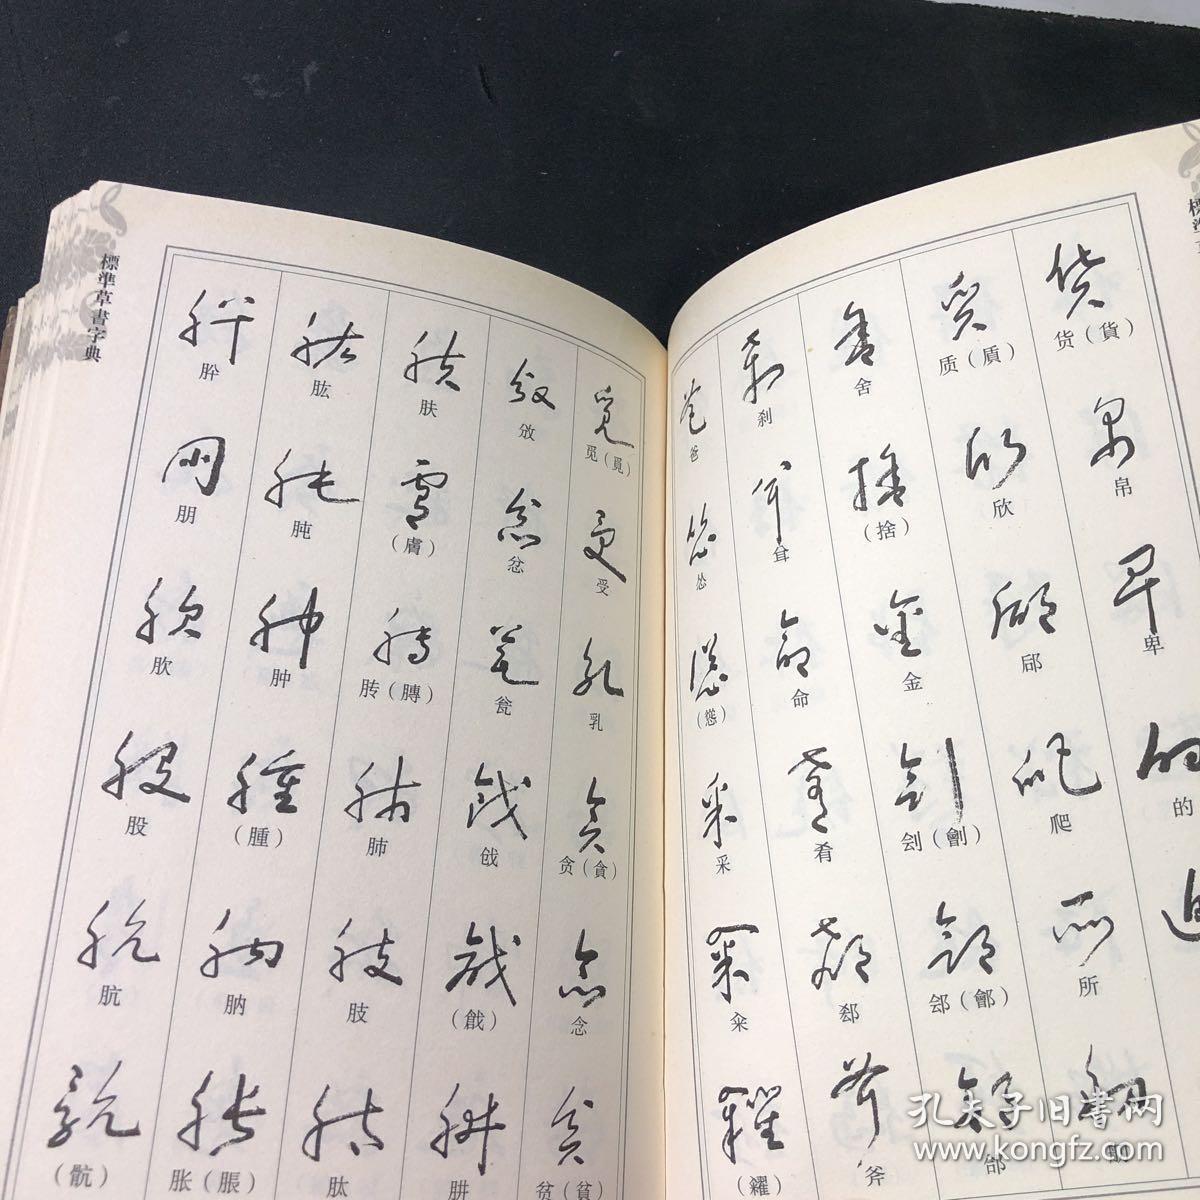 標準草
货（貨） 帛 卑 的
质（質） 欣 爬 所
舍 （捨） 金 刽（劊） 郐（鄶） 郃
刹 命 肴 郄 斧
爸 怂 （慫） 采 籴 （糴）
標準草書字典
觅（覓） 受 乳 贪（貪） 念 贫（貧）
攽 忿 瓮 戗 （戧） 肼
肤 （膚） 䏝（膞） 肺 肢 肽
肱 肫 肿 （腫） 肭 胀（脹）
肸 朋 肷 股 肮 （骯）
孔夫子旧书网
www.kongfz.com